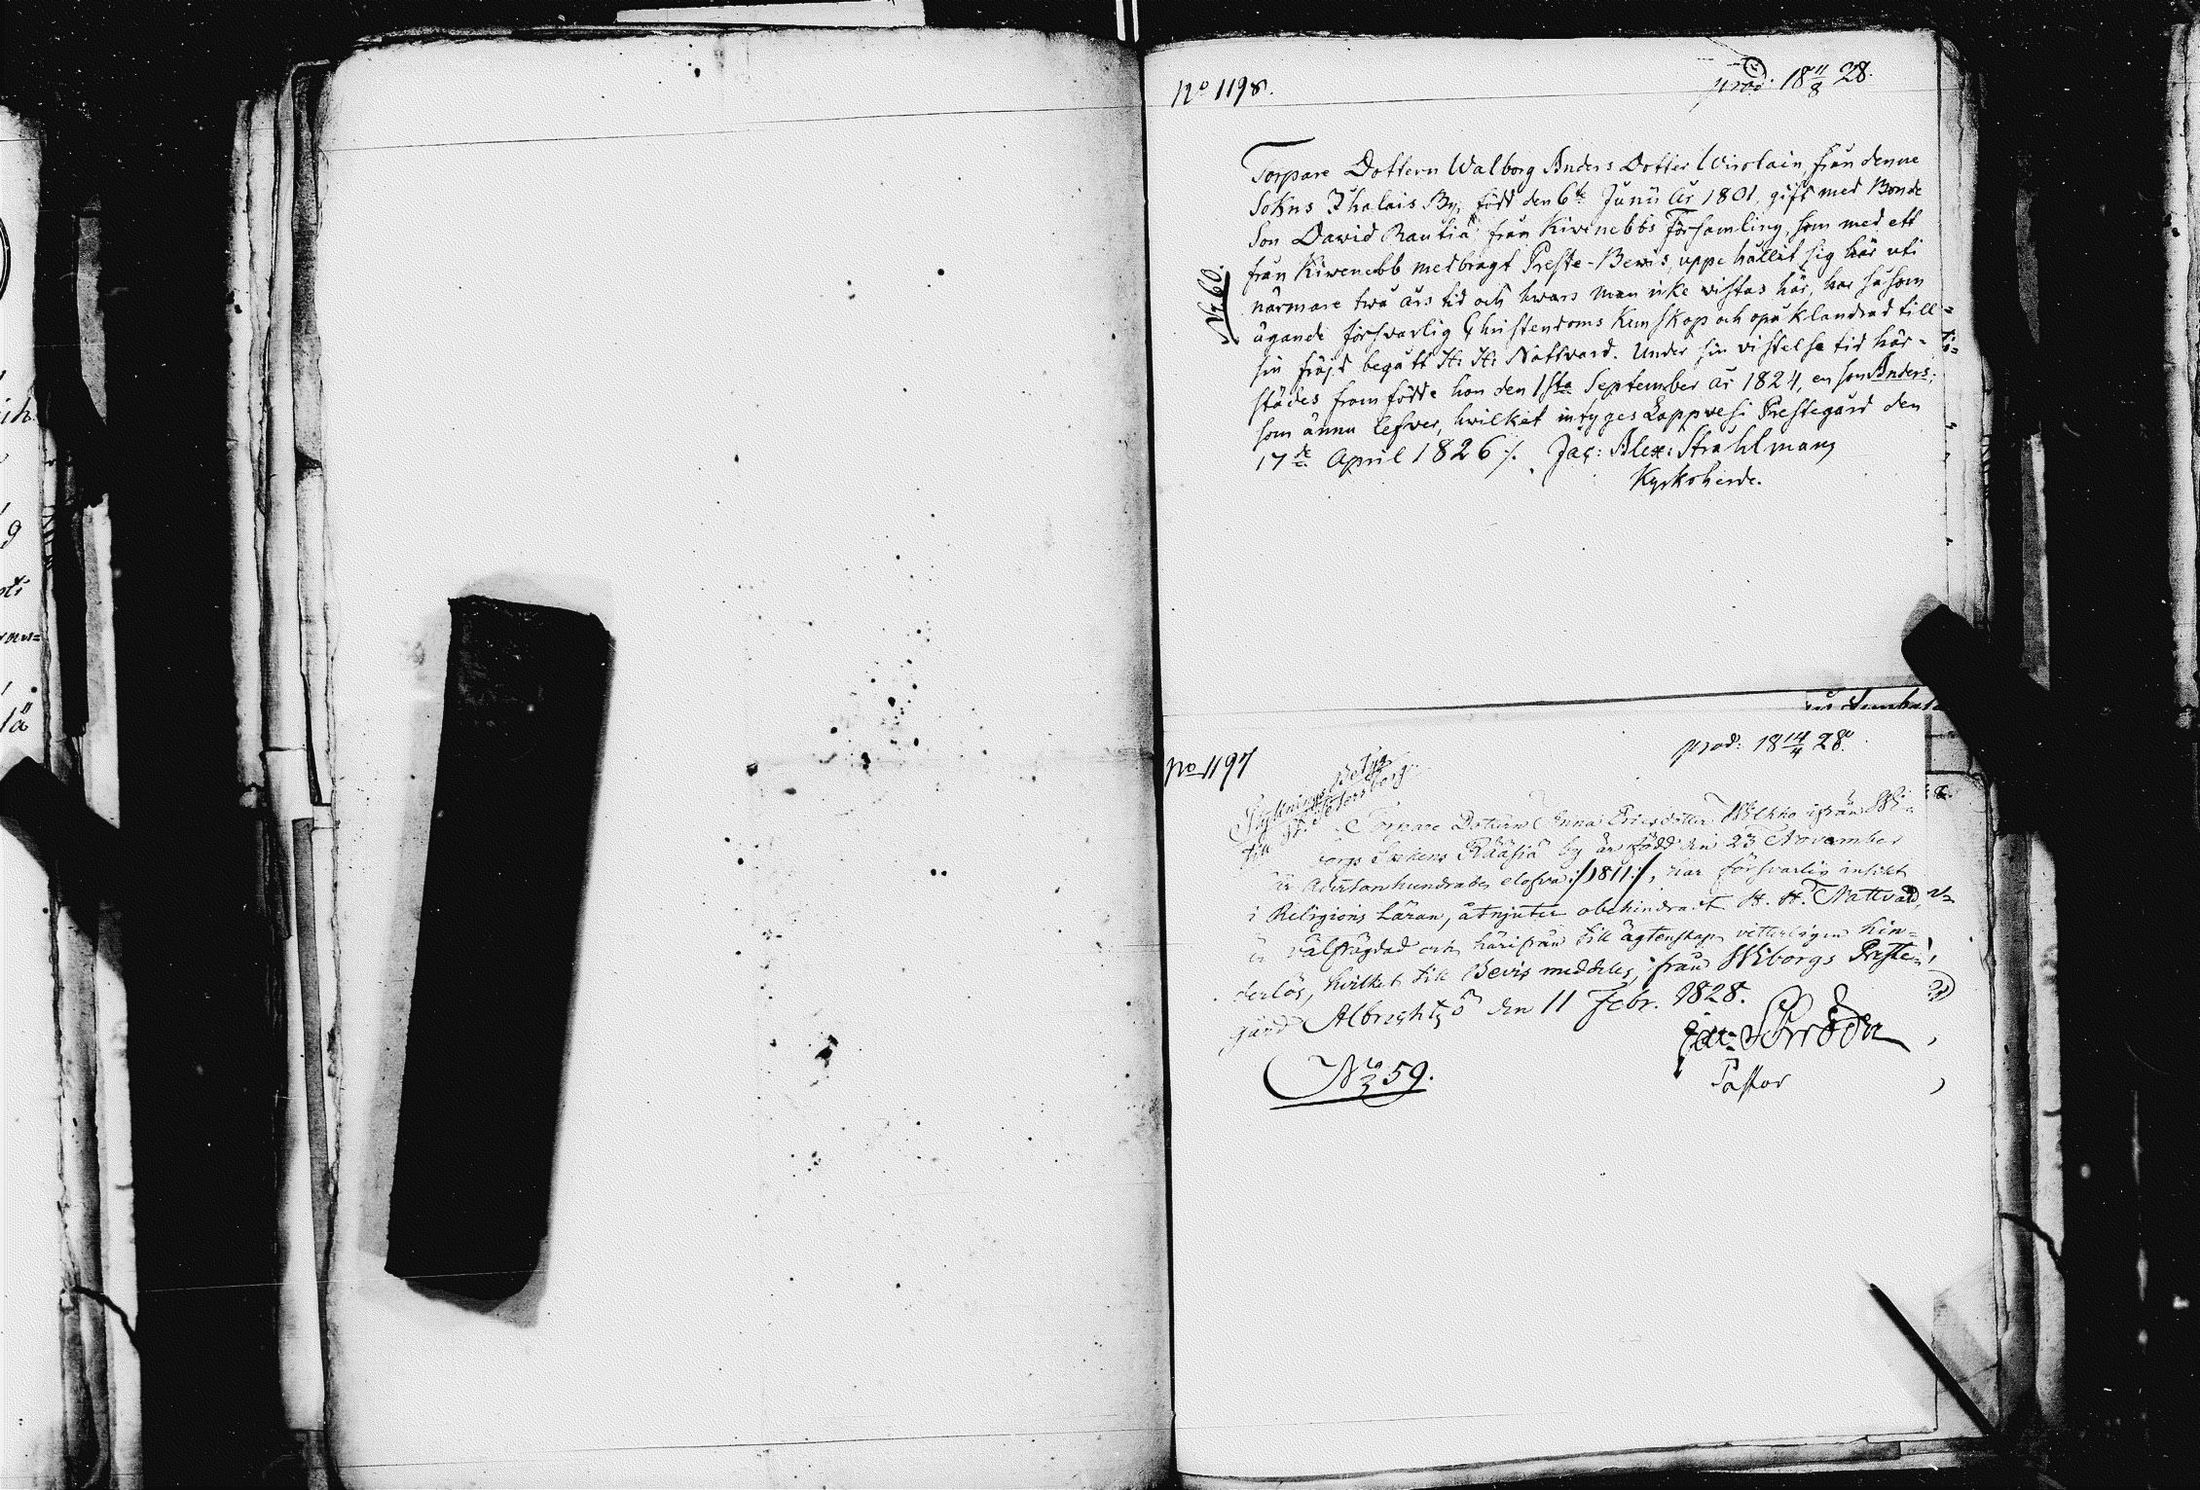 No 1198.
prod: 18 11/8 28.
Torpare Dottern Walborg Anders Dotter Wirolain, från denne
Sokns Ihalais By, född den 6te Junii år 1801, gift med Bonde
Son Dawid Rautia, från Kivinebbs Församling, som med ett
från Kiwenebb medbragt Preste-Bewis, uppehållit sig här uti
närmare twå års tid och hwars man icke wistas här, har såsom
ägande förswarlig Christendoms Kunskap och opåklandrad till
sin fräjd begått H: H: Nattward. Under sin vistelse tid här-
städes framfödde hon den 1sta September år 1824, en son Anders;
som ännu lefver, hvilket intyges Lappvesi Prestegård den
17de April 1826 ./. Jac: Alex: Strahlman
Kyrkoherde.
No 60.
No 1197
prod: 18 14/4 28.
Betyg
till St. Petersborg
Torpare Dottern Anna Ericsdotter Wilkko ifrån Wi-
borgs Sockens Rääsiä by är född den 23 November
år adertonhundrade elofva :/1811:/, har försvarlig insikt
i Religions Läran, åtnjuter obehindradt H. H. Nattvard,
är välfrägdad och härifrån till ägtenskap vetterligen hin-
derlös, hvilket till Bevis meddeles, från Wiborgs Preste-
gård Albrechtsö den 11 Febr. 1828.
Pastor
No 59.